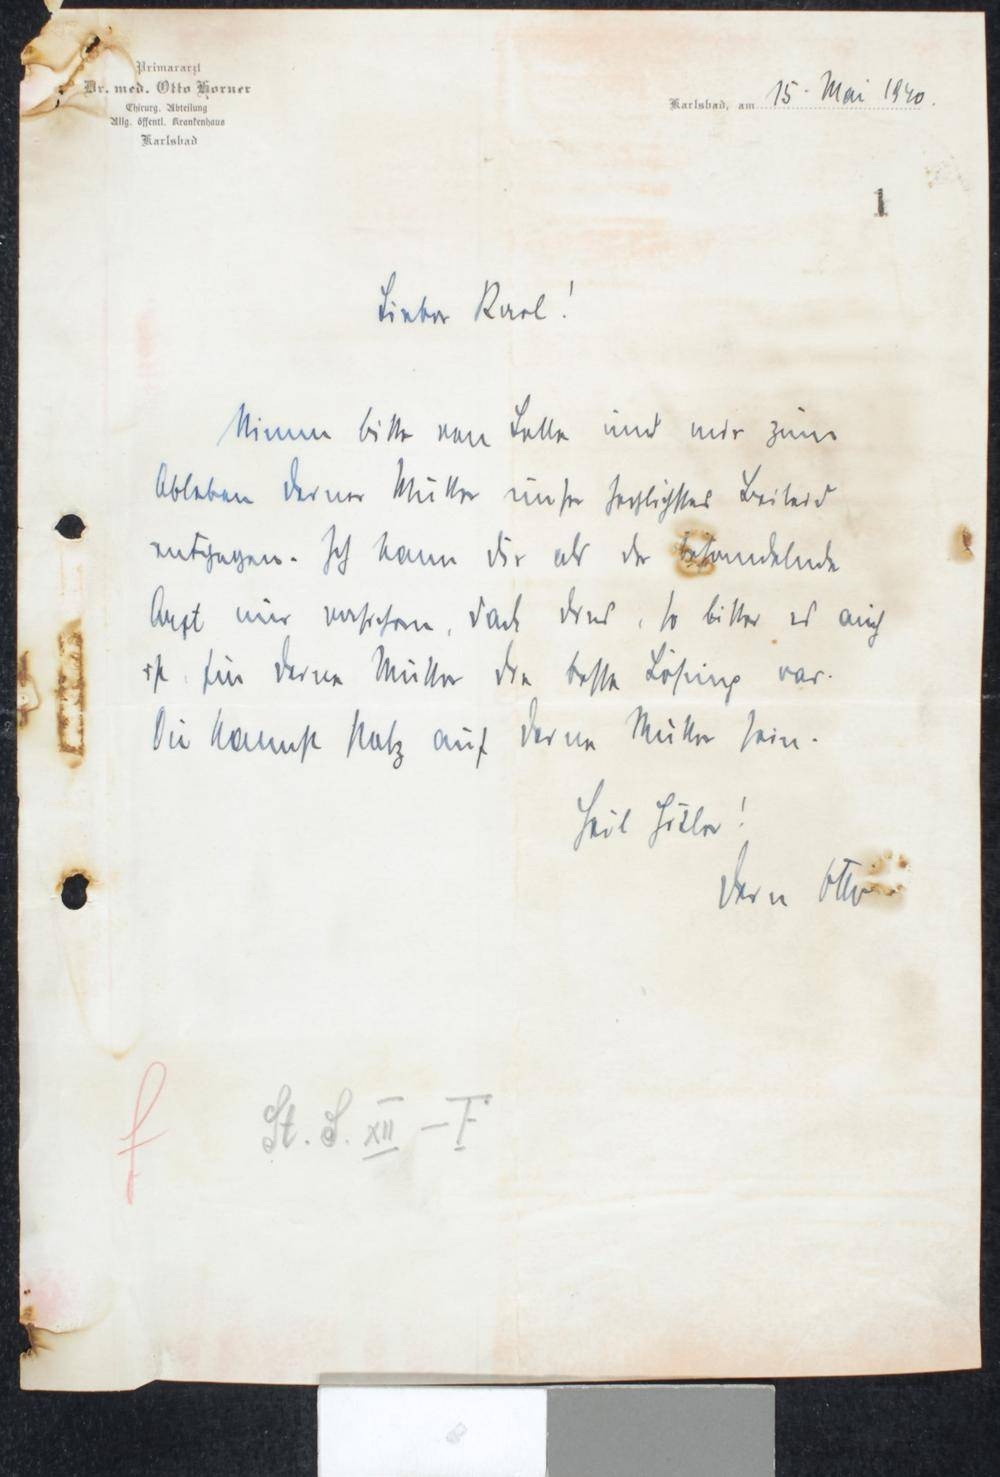 Primararzt
Dr. med. Otto Horner
Chirurg. Abteilung
Allg. öffentl. Krankenhaus
Karlsbad
Karlsbad, am 15. Mai 1940.
1
Lieber Karl!
Nimm bitte von und mir zum
Ableben Deiner Mutter unser herzlichstes Beileid
entgegen. Ich kann Dir als der behandelnde
Arzt nur versichern, dass dies, so bitter es auch
ist für Deine Mutter die beste Lösung war.
Du kannst stolz auf Deine Mutter sein.
Heil Hitler!
Dein Otto
St. S. XII - F